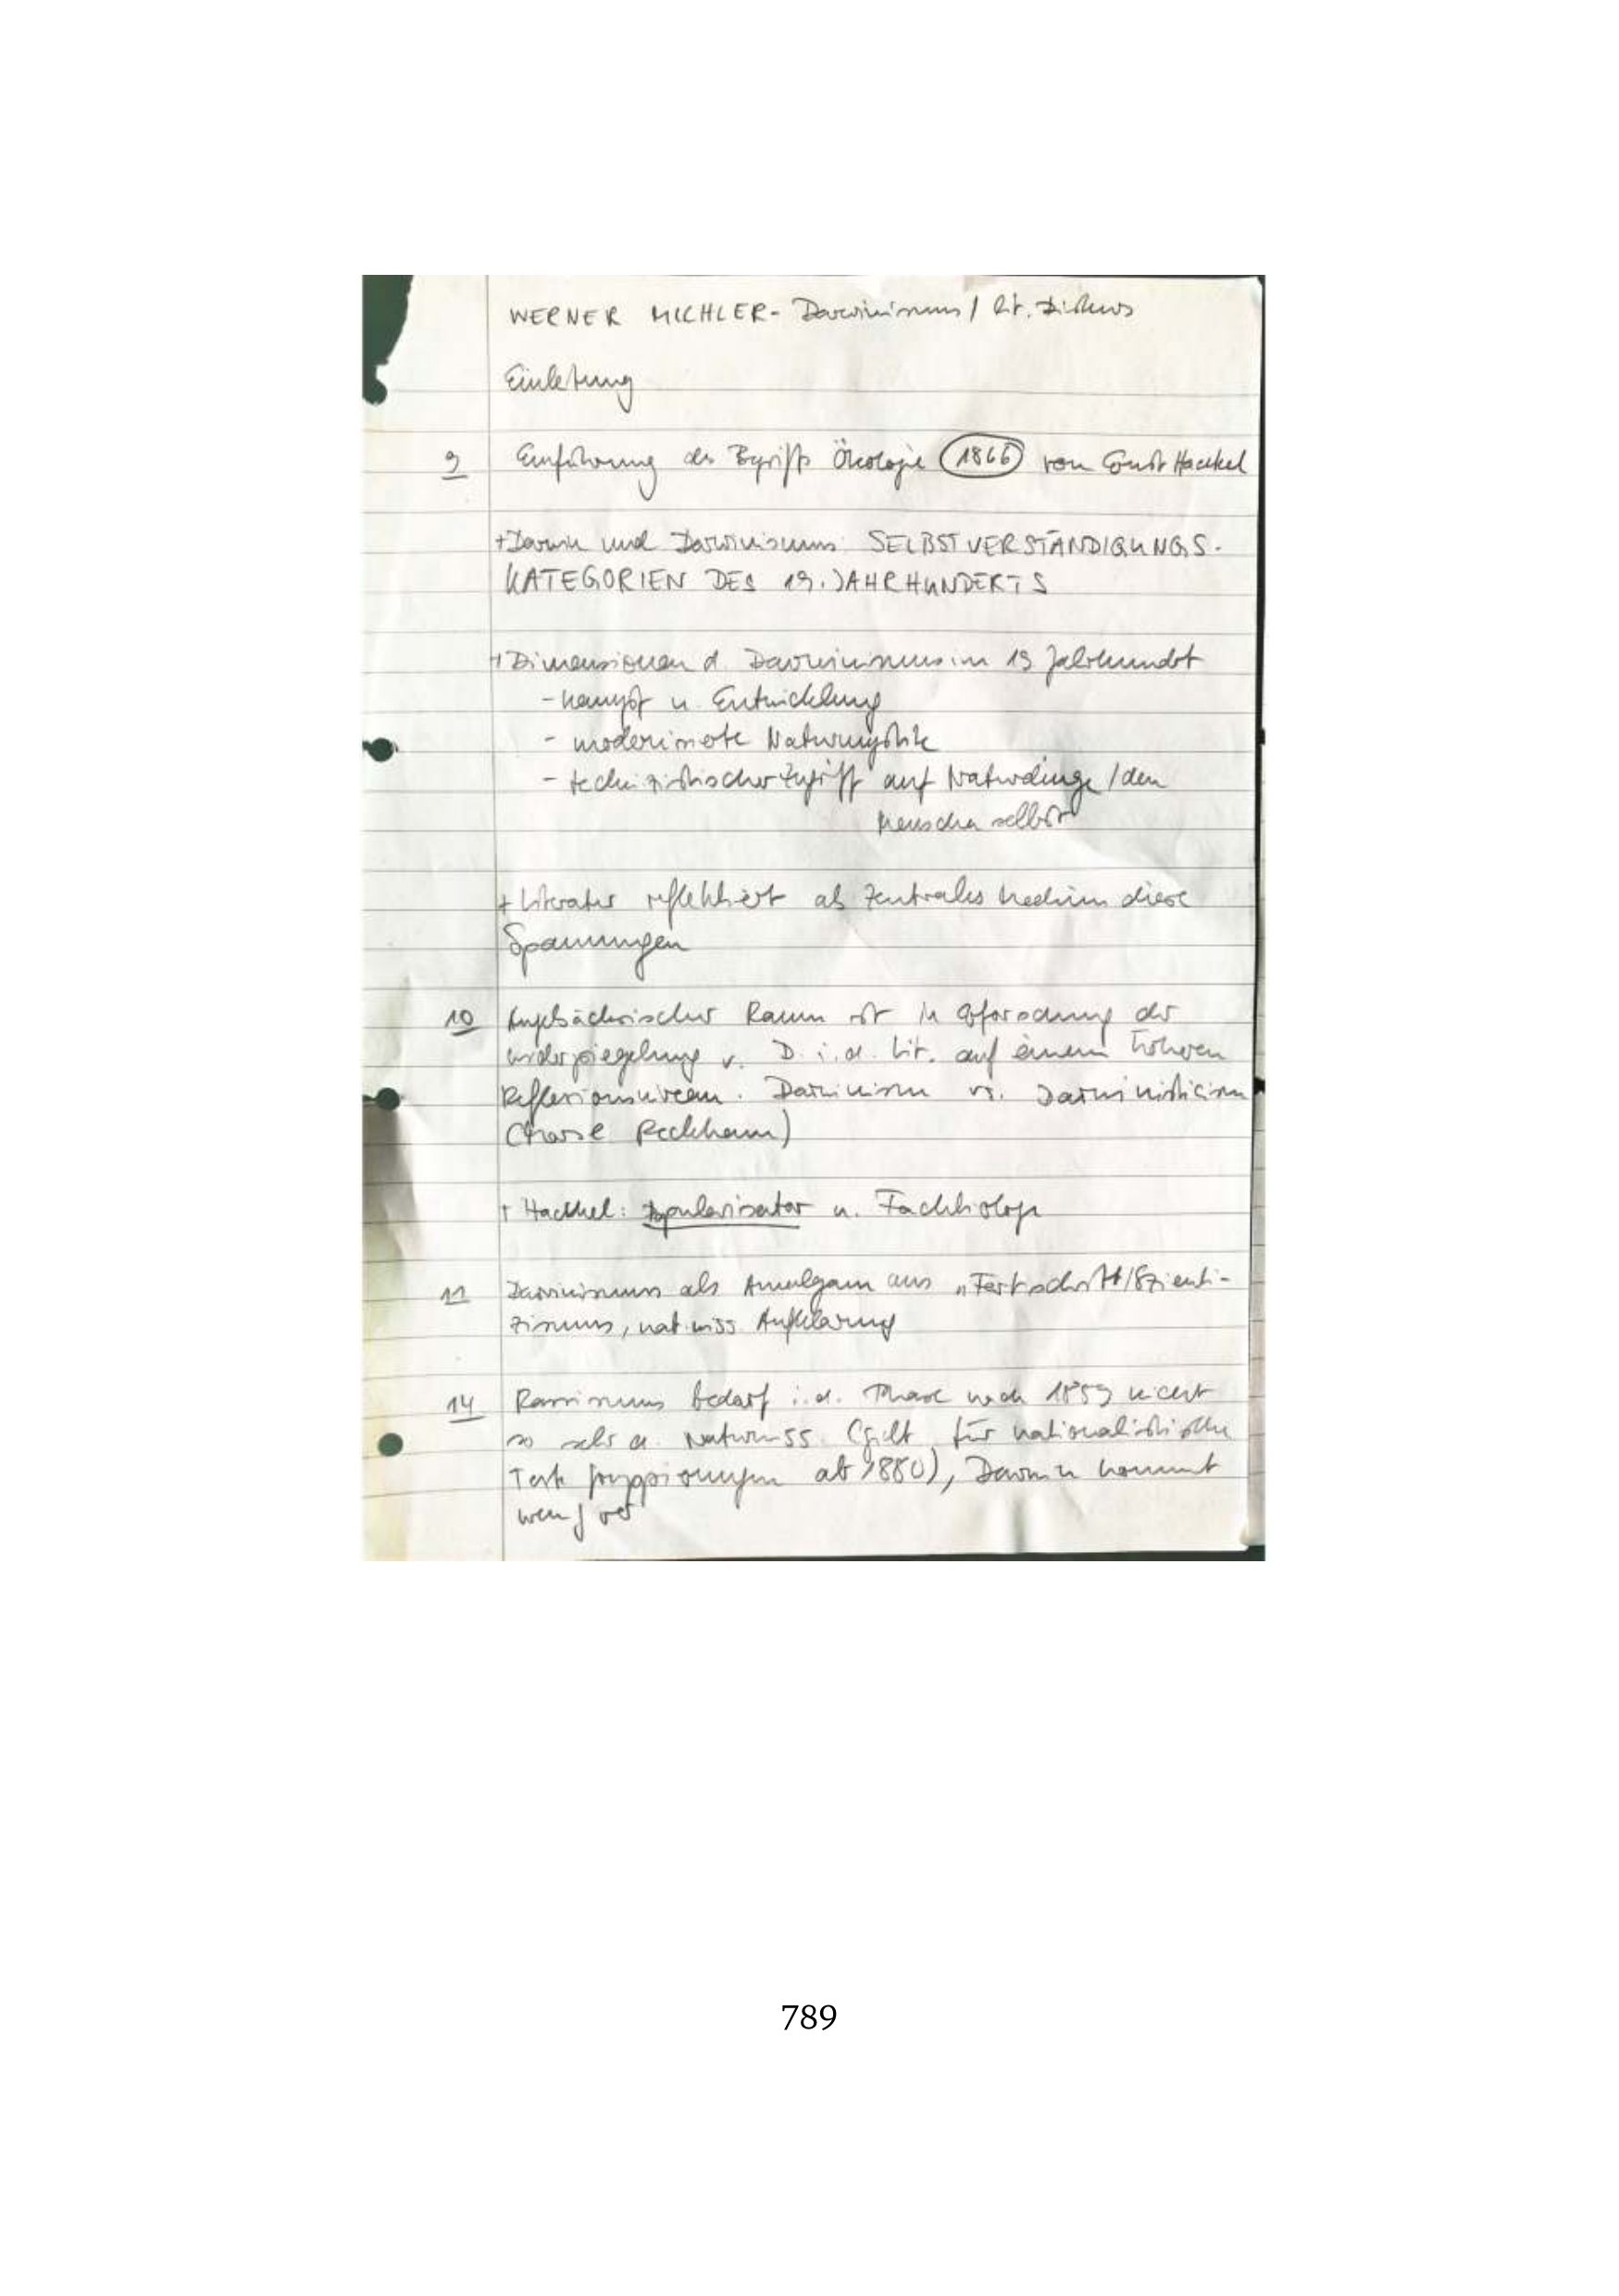 WERNER MICHLER - Darwinismus / lit. Diskurs
Einleitung
9 Einführung des Begriffs Ökologie 1866 von Ernst Haeckel
+ Darwin und Darwinismus: SELBSTVERSTÄNDIGUNGS-
KATEGORIEN DES 19. JAHRHUNDERTS
+ Dimensionen d. Darwinismus im 19 Jahrhundert
- Kampf u. Entwicklung
- modernisierte Naturmystik
- technizistischer Zugriff auf Naturdinge / den
Menschen selbst
+ Literatur reflektiert als zentrales Medium diese
Spannungen
10 Angelsächsischer Raum ist in Erforschung der
Widerspiegelung v. D. i. d. Lit. auf einem höheren
Reflexionsniveau. Darwinism vs. Darwinisticism
(Morse Peckham)
+ Haeckel: Popularisator u. Fachbiologe
11 Darwinismus als Amalgam aus „Fortschritt/Szienti-
zismus, nat.wiss. Aufklärung
14 Rassismus bedarf i. d. Phase nach 1859 nicht
so sehr d. Naturwiss. (gilt für nationalistische
ab 1880), Darwin kommt
wenig vor
789